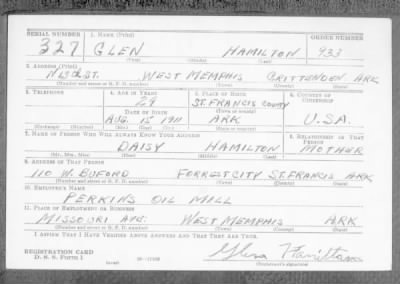 SERIAL NUMBER 1. NAME (Print) ORDER NUMBER
327 GLEN HAMILTON 933
(First) (Middle) (Last)
2. ADDRESS (Print)
WEST MEMPHIS CRITTENDEN ARK
(Number and street or R. F. D. number) (Town) (County) (State)
3. TELEPHONE 4. AGE IN YEARS 5. PLACE OF BIRTH 6. COUNTRY OF CITIZENSHIP
29 ST. FRANCIS COUNTY
DATE OF BIRTH (Town or county)
AUG. 1911 ARK U.S.A.
(Exchange) (Number) (Mo.) (Day) (Yr.) (State or country)
7. NAME OF PERSON WHO WILL ALWAYS KNOW YOUR ADDRESS 8. RELATIONSHIP OF THAT PERSON
DAISY HAMILTON MOTHER
(Mr., Mrs., Miss) (First) (Middle) (Last)
9. ADDRESS OF THAT PERSON
110 W. BUFORD FORREST CITY ST. FRANCIS ARK
(Number and street or R. F. D. number) (Town) (County) (State)
10. EMPLOYER'S NAME
PERKINS OIL MILL
11. PLACE OF EMPLOYMENT OR BUSINESS
MISSOURI AVE. WEST MEMPHIS ARK
(Number and street or R. F. D. number) (Town) (County) (State)
I AFFIRM THAT I HAVE VERIFIED ABOVE ANSWERS AND THAT THEY ARE TRUE.
REGISTRATION CARD
D. S. S. Form 1 Glen Hamilton
(Registrant's signature)